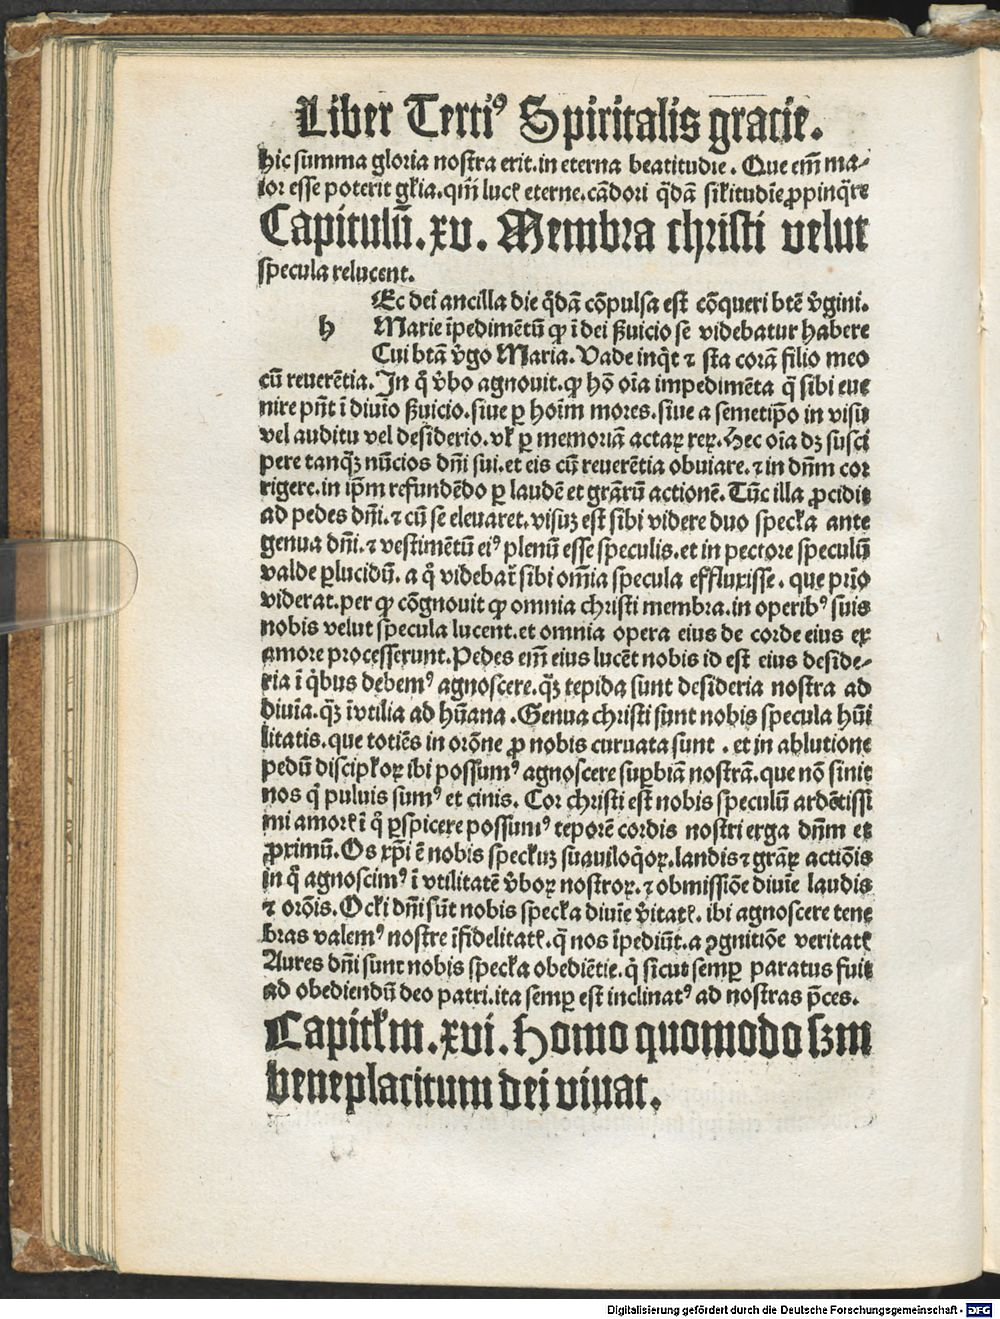 Liber Terti⁹ Spiritalis gracie.
hic summa gloria nostra erit.in eterna beatitudie. Que em̄ ma⸗
ior esse poterit gl̄ia.qm̄ lucꝭ eterne.cādori q̄dā sil̄itudīe ꝓpinq̄re
Capitulū.xv. Membra christi velut
specula relucent.
Ec dei ancilla die q̄dā cōpulsa est cōqueri btē v̄gini.
h Marie īpedimētū ꝙ ī dei ẜuicio se videbatur habere
Cui btā v̄go Maria.Vade inq̄t ⁊ sta corā filio meo
cū reuerētia.In q̄ v̄bo agnouit.ꝙ hō oīa impedimēta q̄ sibi eue
nire pn̄t ī diuīo ẜuicio.siue ꝑ hoīm mores.siue a semetip̄o in visu
vel auditu vel desiderio.vl̄ ꝑ memoriā actaꝝ reꝝ.Hec oīa dꝫ susci
pere tanqꝫ nūcios dn̄i sui.et eis cū reuerētia obuiare.⁊ in dn̄m cor
rigere.in ip̄m refundēdo ꝑ laudē et grārū actionē.Tūc illa ꝓcidit
ad pedes dn̄i.⁊ cū se eleuaret.visuꝫ est sibi videre duo specl̄a ante
genua dn̄i.⁊ vestimētū ei⁹ plenū esse speculis.et in pectore speculū
valde ꝑlucidū.a q̄ videbat᷑ sibi om̄ia specula effluxisse.que prīo
viderat.per ꝙ cōgnouit ꝙ omnia christi membra.in operib⁹ suis
nobis velut specula lucent.et omnia opera eius de corde eius ex
amore processerunt.Pedes em̄ eius lucēt nobis id est eius deside⸗
ria ī q̄bus debem⁹ agnoscere.qꝫ tepida sunt desideria nostra ad
diuīa.qꝫ īvtilia ad hūana.Genua christi sunt nobis specula hūi
litatis.que totiēs in orōne ꝓ nobis curuata sunt.et in ablutione
pedū discipl̄oꝝ ibi possum⁹ agnoscere suꝑbiā nostrā.que nō sinit
nos q̄ puluis sum⁹ et cinis. Cor christi est nobis speculū ardētissi
mi amorꝭ ī q̄ ꝑspicere possum⁹ teporē cordis nostri erga dn̄m et
ꝓximū.Os xp̄i ē nobis specl̄uꝫ suauiloq̄oꝝ.landis ⁊ grāꝝ actiōis
in q̄ agnoscim⁹ ī vtilitatē v̄boꝝ nostroꝝ.⁊ obmissiōe diuīe laudis
⁊ orōis.Ocl̄i dn̄i sūt nobis specl̄a diuīe v̄itatꝭ.ibi agnoscere tene
bras valem⁹ nostre īfidelitatꝭ.q̄ nos īpediūt.a ꝯgnitiōe veritatꝭ
Aures dn̄i sunt nobis specl̄a obediētie.q̄ sicut semꝑ paratus fuit
ad obediendū deo patri.ita semꝑ est inclinat⁹ ad nostras p̄ces.
Capitl̄m.xvi.Homo quomodo scꝫm
beneplacitum dei viuat.
Digitalisierung gefördert durch die Deutsche Forschungsgemeinschaft - DFG